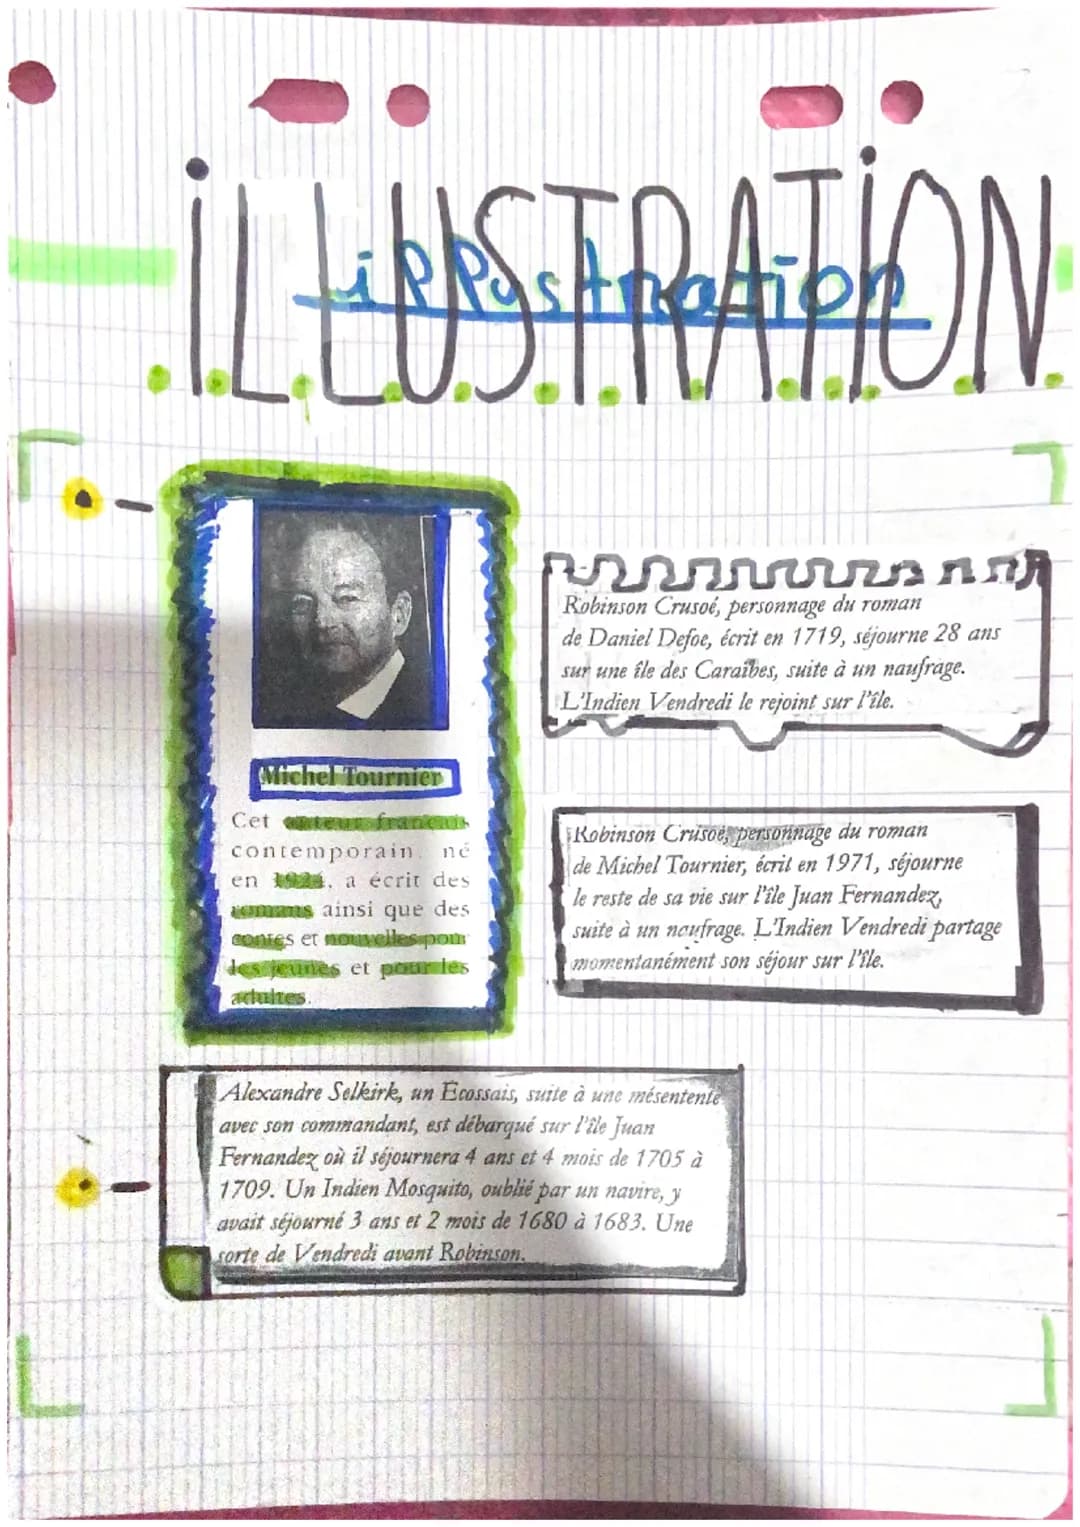 iLLUSTRATiON
illustration
Michel Tournier
Cet auteur français
contemporain, né
en 1924, a écrit des
romans ainsi que des
contes et nouvelles pour
les jeunes et pour les
adultes.
Robinson Crusoé, personnage du roman
de Daniel Defoe, écrit en 1719, séjourne 28 ans
sur une île des Caraïbes, suite à un naufrage.
L'Indien Vendredi le rejoint sur l'île.
Robinson Crusoé, personnage du roman
de Michel Tournier, écrit en 1971, séjourne
le reste de sa vie sur l'île Juan Fernandez,
suite à un naufrage. L'Indien Vendredi partage
momentanément son séjour sur l'île.
Alexandre Selkirk, un Ecossais, suite à une mésentente
avec son commandant, est débarqué sur l'île Juan
Fernandez où il séjournera 4 ans et 4 mois de 1705 à
1709. Un Indien Mosquito, oublié par un navire, y
avait séjourné 3 ans et 2 mois de 1680 à 1683. Une
sorte de Vendredi avant Robinson.